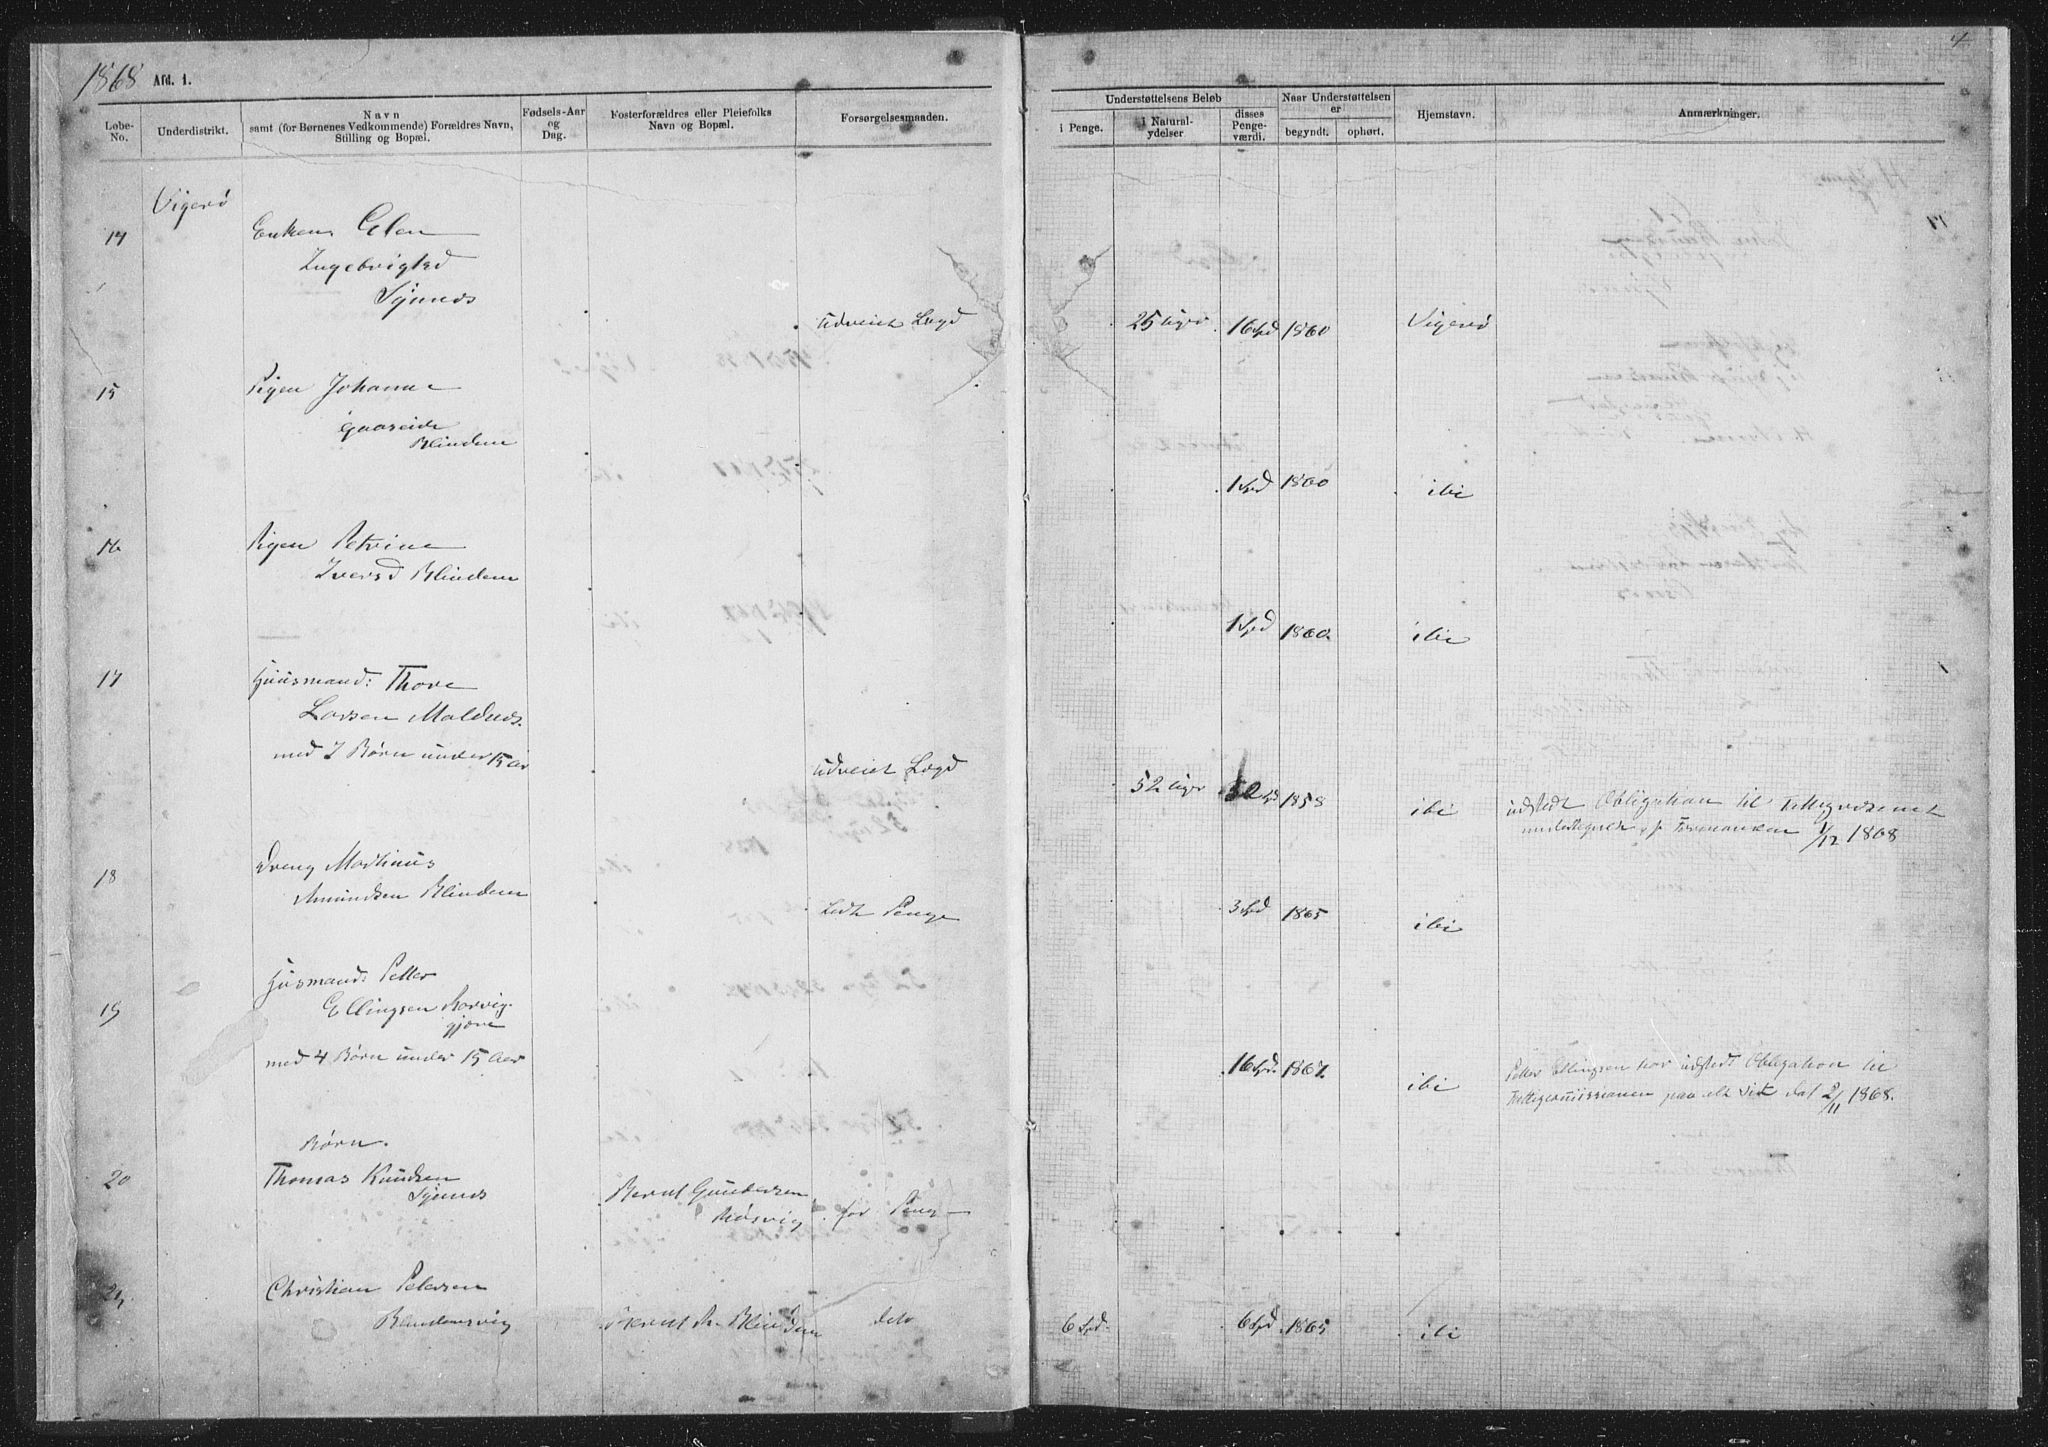 1868 Afd. 1.
4
Løbe-No.
Underdistrikt.
Navn
samt (for Børnenes Vedkommende) Forældres Navn,
Stilling og Bopæl.
Fødsels-Aar
og
Dag.
Fosterforældres eller Pleiefolks
Navn og Bopæl.
Forsørgelsesmaaden.
Understøttelsens Beløb
i Penge.
i Natural-
ydelser
disses
Penge-
værdi.
Naar Understøttelsen
er
begyndt.
ophørt.
Hjemstavn.
Anmærkninger.
Vigerø
14 Enken Elen
Ingebrigtsd
Synnes
udveiet Lægd 25 Uger 16 Spd 1860 Vigerø
15 Pigen Johanne
Gaaseide
Blindem
1 Spd 1860 ibi
16 Pigen Petrine
Iversd Blindem
1 Spd 1860 ibi
17 Huusmand: Thore
Larsen Moldnes
med 2 Børn under 15 Aar
udveiet Lægd 52 Uger 52 Spd 1858 ibi udstedt Obligation til Fattigvæsenet
Formanden 1/12 1868
18 Dreng Martinus
Amundsen Blindem
Lidt Penge 3 Spd 1865 ibi
19 Husmand: Petter
Ellingsen Morvig-
gjære
med 4 Børn under 15 Aar
16 Spd. 1867. ibi Petter Ellingsen har udstedt Obligation til
Fattigcommissionen paa alt sit dat 2/11 1868.
Børn.
20 Thomas Knudsen
Synnes
Bernt Gundersen
Røsvig for Penge
21 Christian Petersen
Blindemsvig
Bernt R. Blindem dito 6 Spd. 6 Spd 1865 ibi